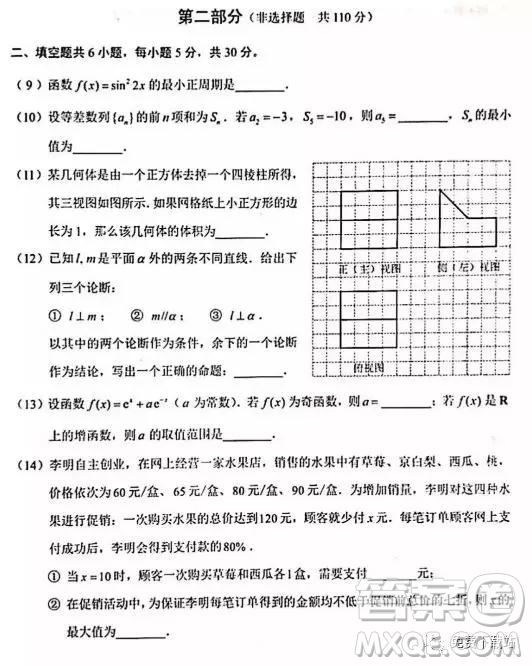 第二部分（非选择题 共110分）
二、填空题共6小题，每小题5分，共30分．
（9）函数 f(x)=sin²2x 的最小正周期是________．
（10）设等差数列{aₙ}的前n项和为Sₙ．若a₂=−3，S₅=−10，则a₅=________，Sₙ的最小
值为________．
（11）某几何体是由一个正方体去掉一个四棱柱所得，
其三视图如图所示．如果网格纸上小正方形的边
长为1，那么该几何体的体积为________．
正（主）视图
侧（左）视图
俯视图
（12）已知l, m是平面α外的两条不同直线．给出下
列三个论断：
① l⊥m； ② m//α； ③ l⊥α．
以其中的两个论断作为条件，余下的一个论断
作为结论，写出一个正确的命题：________．
（13）设函数 f(x)=eˣ+ae⁻ˣ（a为常数）．若f(x)为奇函数，则a=________；若f(x)是R
上的增函数，则a的取值范围是________．
（14）李明自主创业，在网上经营一家水果店，销售的水果中有草莓、京白梨、西瓜、桃，
价格依次为60元/盒、65元/盒、80元/盒、90元/盒．为增加销量，李明对这四种水
果进行促销：一次购买水果的总价达到120元，顾客就少付x元．每笔订单顾客网上支
付成功后，李明会得到支付款的80%．
① 当x=10时，顾客一次购买草莓和西瓜各1盒，需要支付________元；
② 在促销活动中，为保证李明每笔订单得到的金额均不低于促销前总价的七折，则x的
最大值为________．
答案圈
MXQE.COM